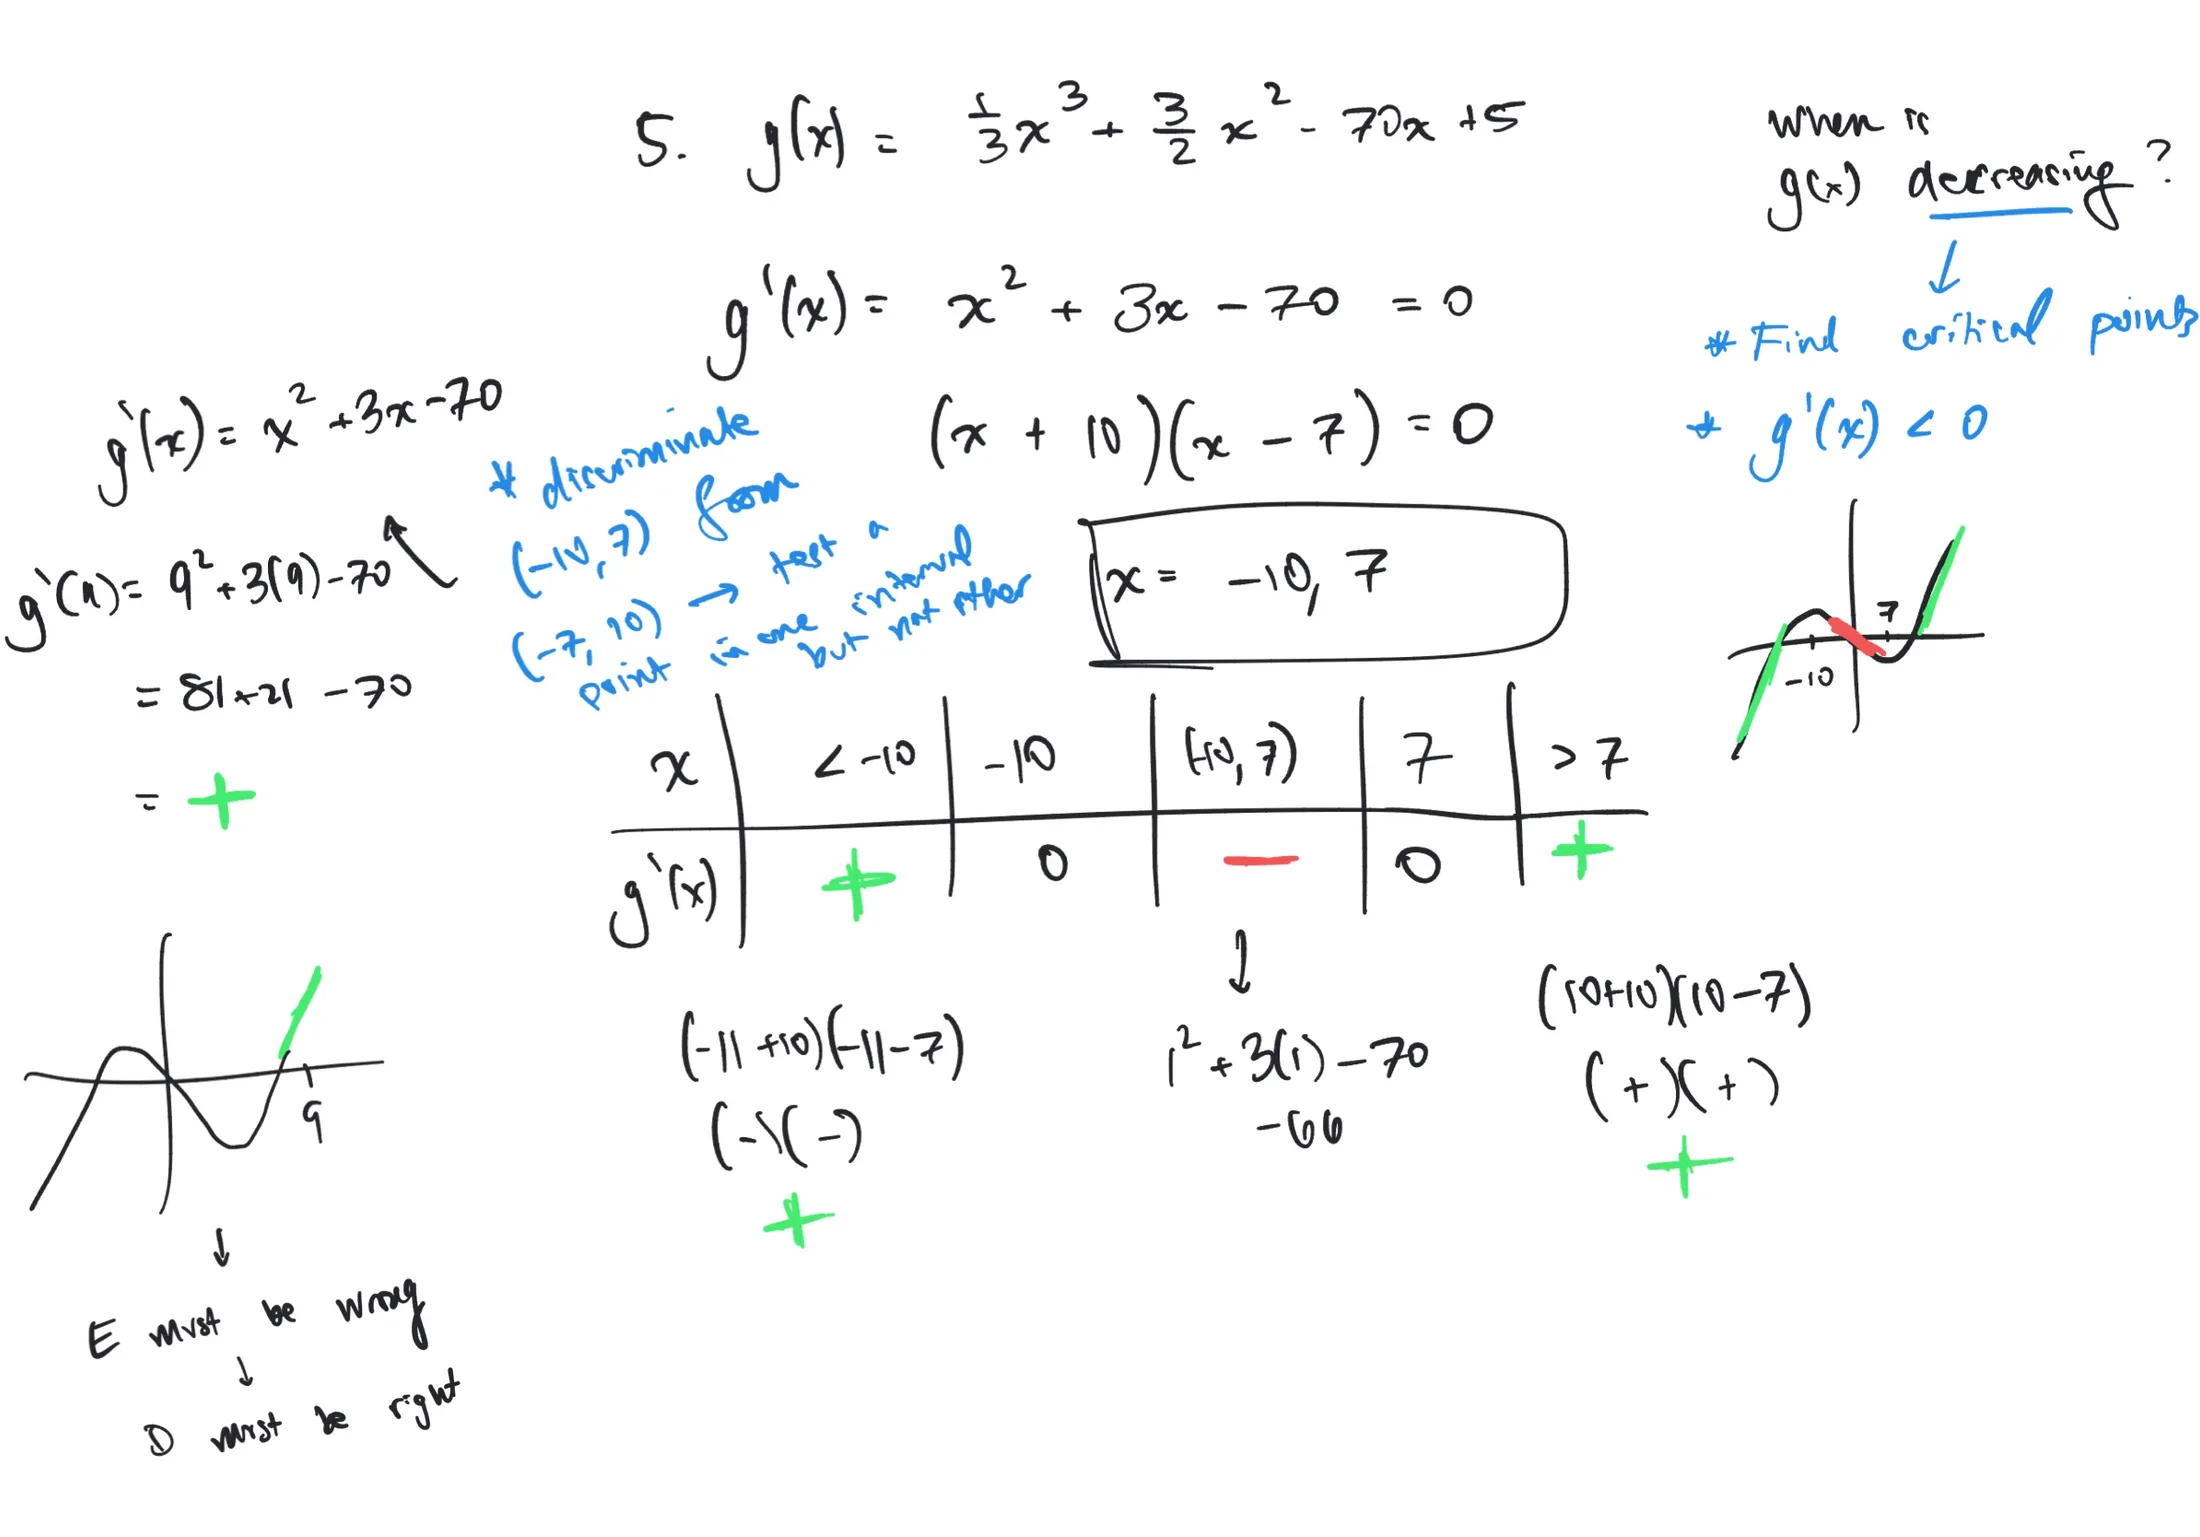 5. g(x) = 1/3 x³ + 3/2 x² - 70x + 5
When is
g(x) decreasing?
g'(x) = x² + 3x - 70 = 0
* Find critical points
(x + 10)(x - 7) = 0
* g'(x) < 0
x = -10, 7
7
-10
g'(x) = x² + 3x - 70
g'(9) = 9² + 3(9) - 70
= 81 + 21 - 70
= +
* discriminate
(-10, 7) from
(-7, 10) → test a
point in one interval
but not other
x | < -10 | -10 | (-10, 7) | 7 | > 7
g'(x) | + | 0 | — | 0 | +
(-11 + 10)(-11 - 7)
(-)(-)
+
1² + 3(1) - 70
-66
(10+10)(10-7)
(+)(+)
+
9
E must be wrong
D must be right